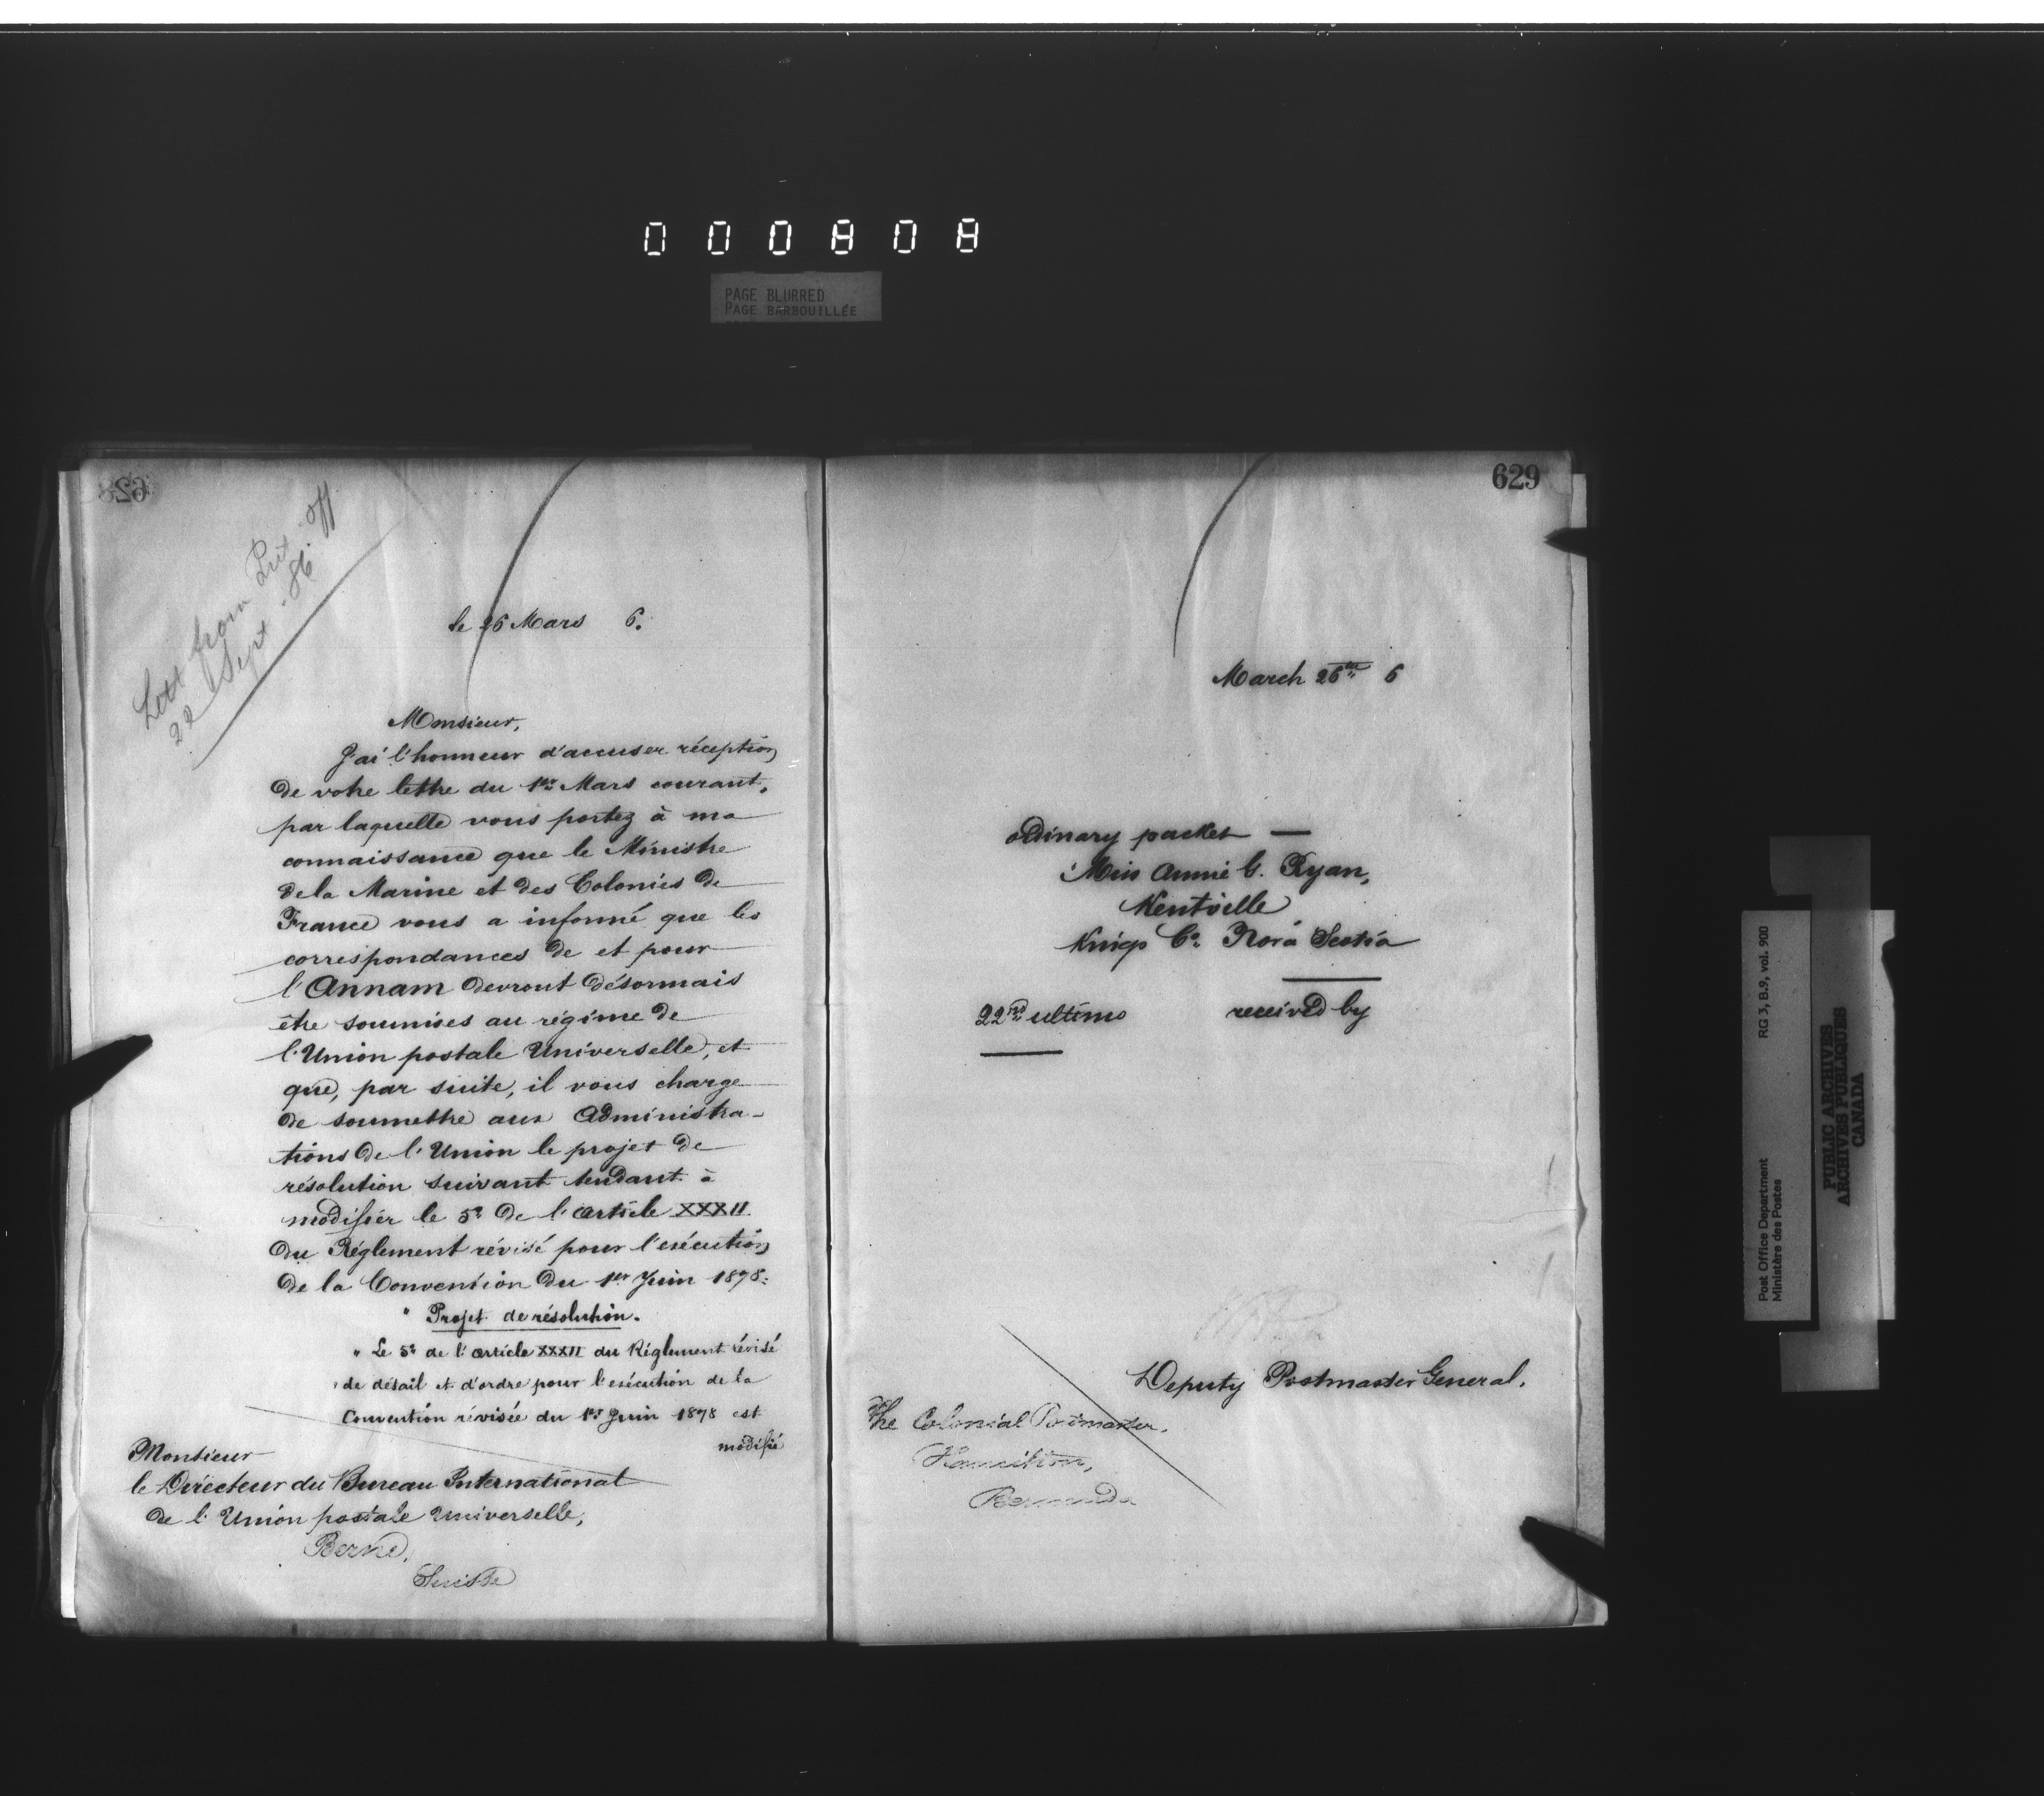 000808
PAGE BLURRED
PAGE BARBOUILLÉE
628
Lett from
22 Sept. 86.
le 26 Mars 6.
Monsieur,
J'ai l'honneur d'accuser réception
de votre lettre du 1er Mars courant,
par laquelle vous portez à ma
connaissance que le Ministre
de la Marine et des Colonies de
France vous a informé que les
correspondances de et pour
l'Annam devront désormais
être soumises au régime de
l'Union postale Universelle, et
que, par suite, il vous charge
de soumettre aux Administra-
tions de l'Union le projet de
résolution suivant tendant à
modifier le 5° de l'article XXXII
du Réglement révisé pour l'exécution
de la Convention du 1er Juin 1878:
" Projet de résolution.
" Le 5° de l'article XXXII du Réglement révisé
de détail et d'ordre pour l'exécution de la
Convention révisée du 1er Juin 1878 est
modifié
Monsieur
le Directeur du Bureau International
de l'Union postale Universelle,
Berne,
Suisse
629
March 26th 6
ordinary packet —
Miss Annie G. Ryan,
Kentville
Kings Co. Nova Scotia
22nd ultimo received by
Deputy Postmaster General.
The Colonial Postmaster,
Hamilton,
Bermuda
Post Office Department
Ministère des Postes
RG 3, B.9, vol. 900
PUBLIC ARCHIVES
ARCHIVES PUBLIQUES
CANADA